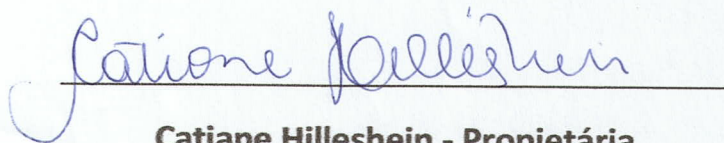 Catiane Hilleshein
Catiane Hilleshein - Propietária